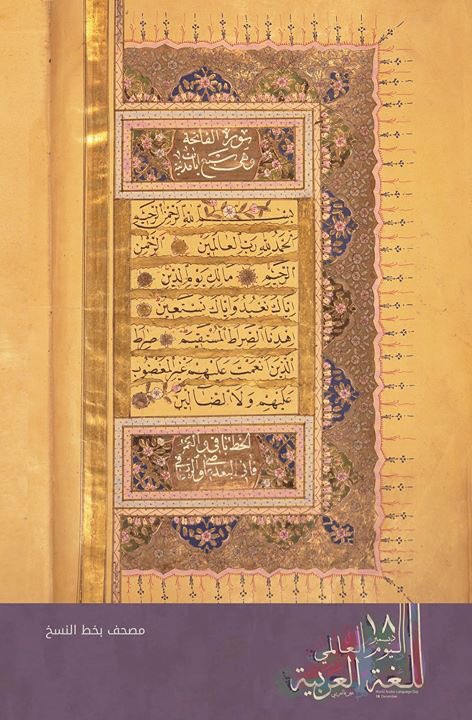 سورة الفاتحة
وهى سبع ايات
بسم الله الرحمن الرحيم
الحمد لله رب العالمين الرحمن
الرحيم مالك يوم الدين
اياك نعبد واياك نستعين
اهدنا الصراط المستقيم صراط
الذين انعمت عليهم غير المغضوب
عليهم ولا الضالين
الخط
مصحف بخط النسخ
١٨ ديسمبر
اليوم العالمي
للغة العربية
World Arabic Language Day
18 December